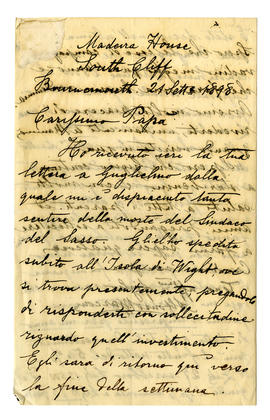 Madeira House
South Cliff
Bournemouth 21 Sett. 1898
Carissimo Papà
Ho ricevuto ieri la tua
lettera a Guglielmo dalla
quale mi è dispiaciuto tanto
sentire della morte del Sindaco
del Sasso. Glielho spedita
subito all'Isola di Wight ove
si trova presentemente, pregandolo
di rispondere con sollecitudine
riguardo quell'investimento.
Egli sarà di ritorno quì verso
la fine della settimana.